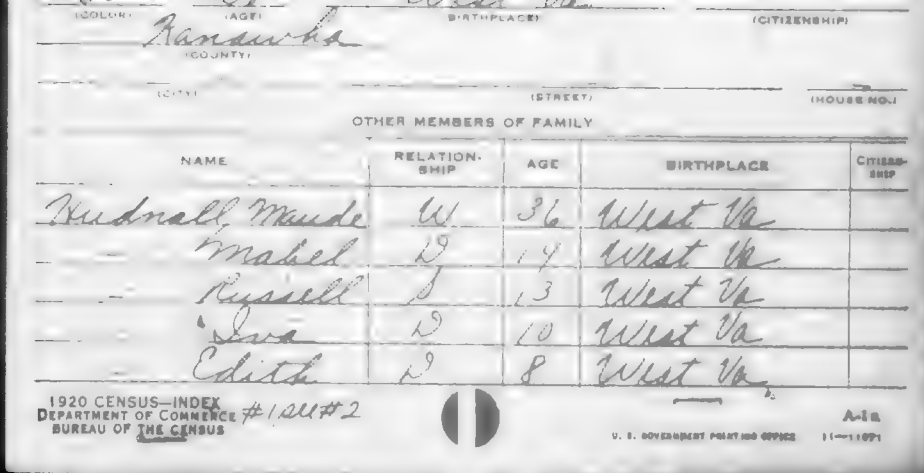 West Va
(COLOR) (AGE) (BIRTHPLACE) (CITIZENSHIP)
Kanawha
(COUNTY)
(CITY) (STREET) (HOUSE NO.)
OTHER MEMBERS OF FAMILY
NAME RELATION-SHIP AGE BIRTHPLACE CITIZEN-SHIP
Hudnall, Maude W 36 West Va
— Mabel D 14 West Va
— Russell S 13 West Va
— Iva D 10 West Va
Edith D 8 West Va
1920 CENSUS—INDEX
DEPARTMENT OF COMMERCE #1 #2
BUREAU OF THE CENSUS
A-1a
U. S. GOVERNMENT PRINTING OFFICE